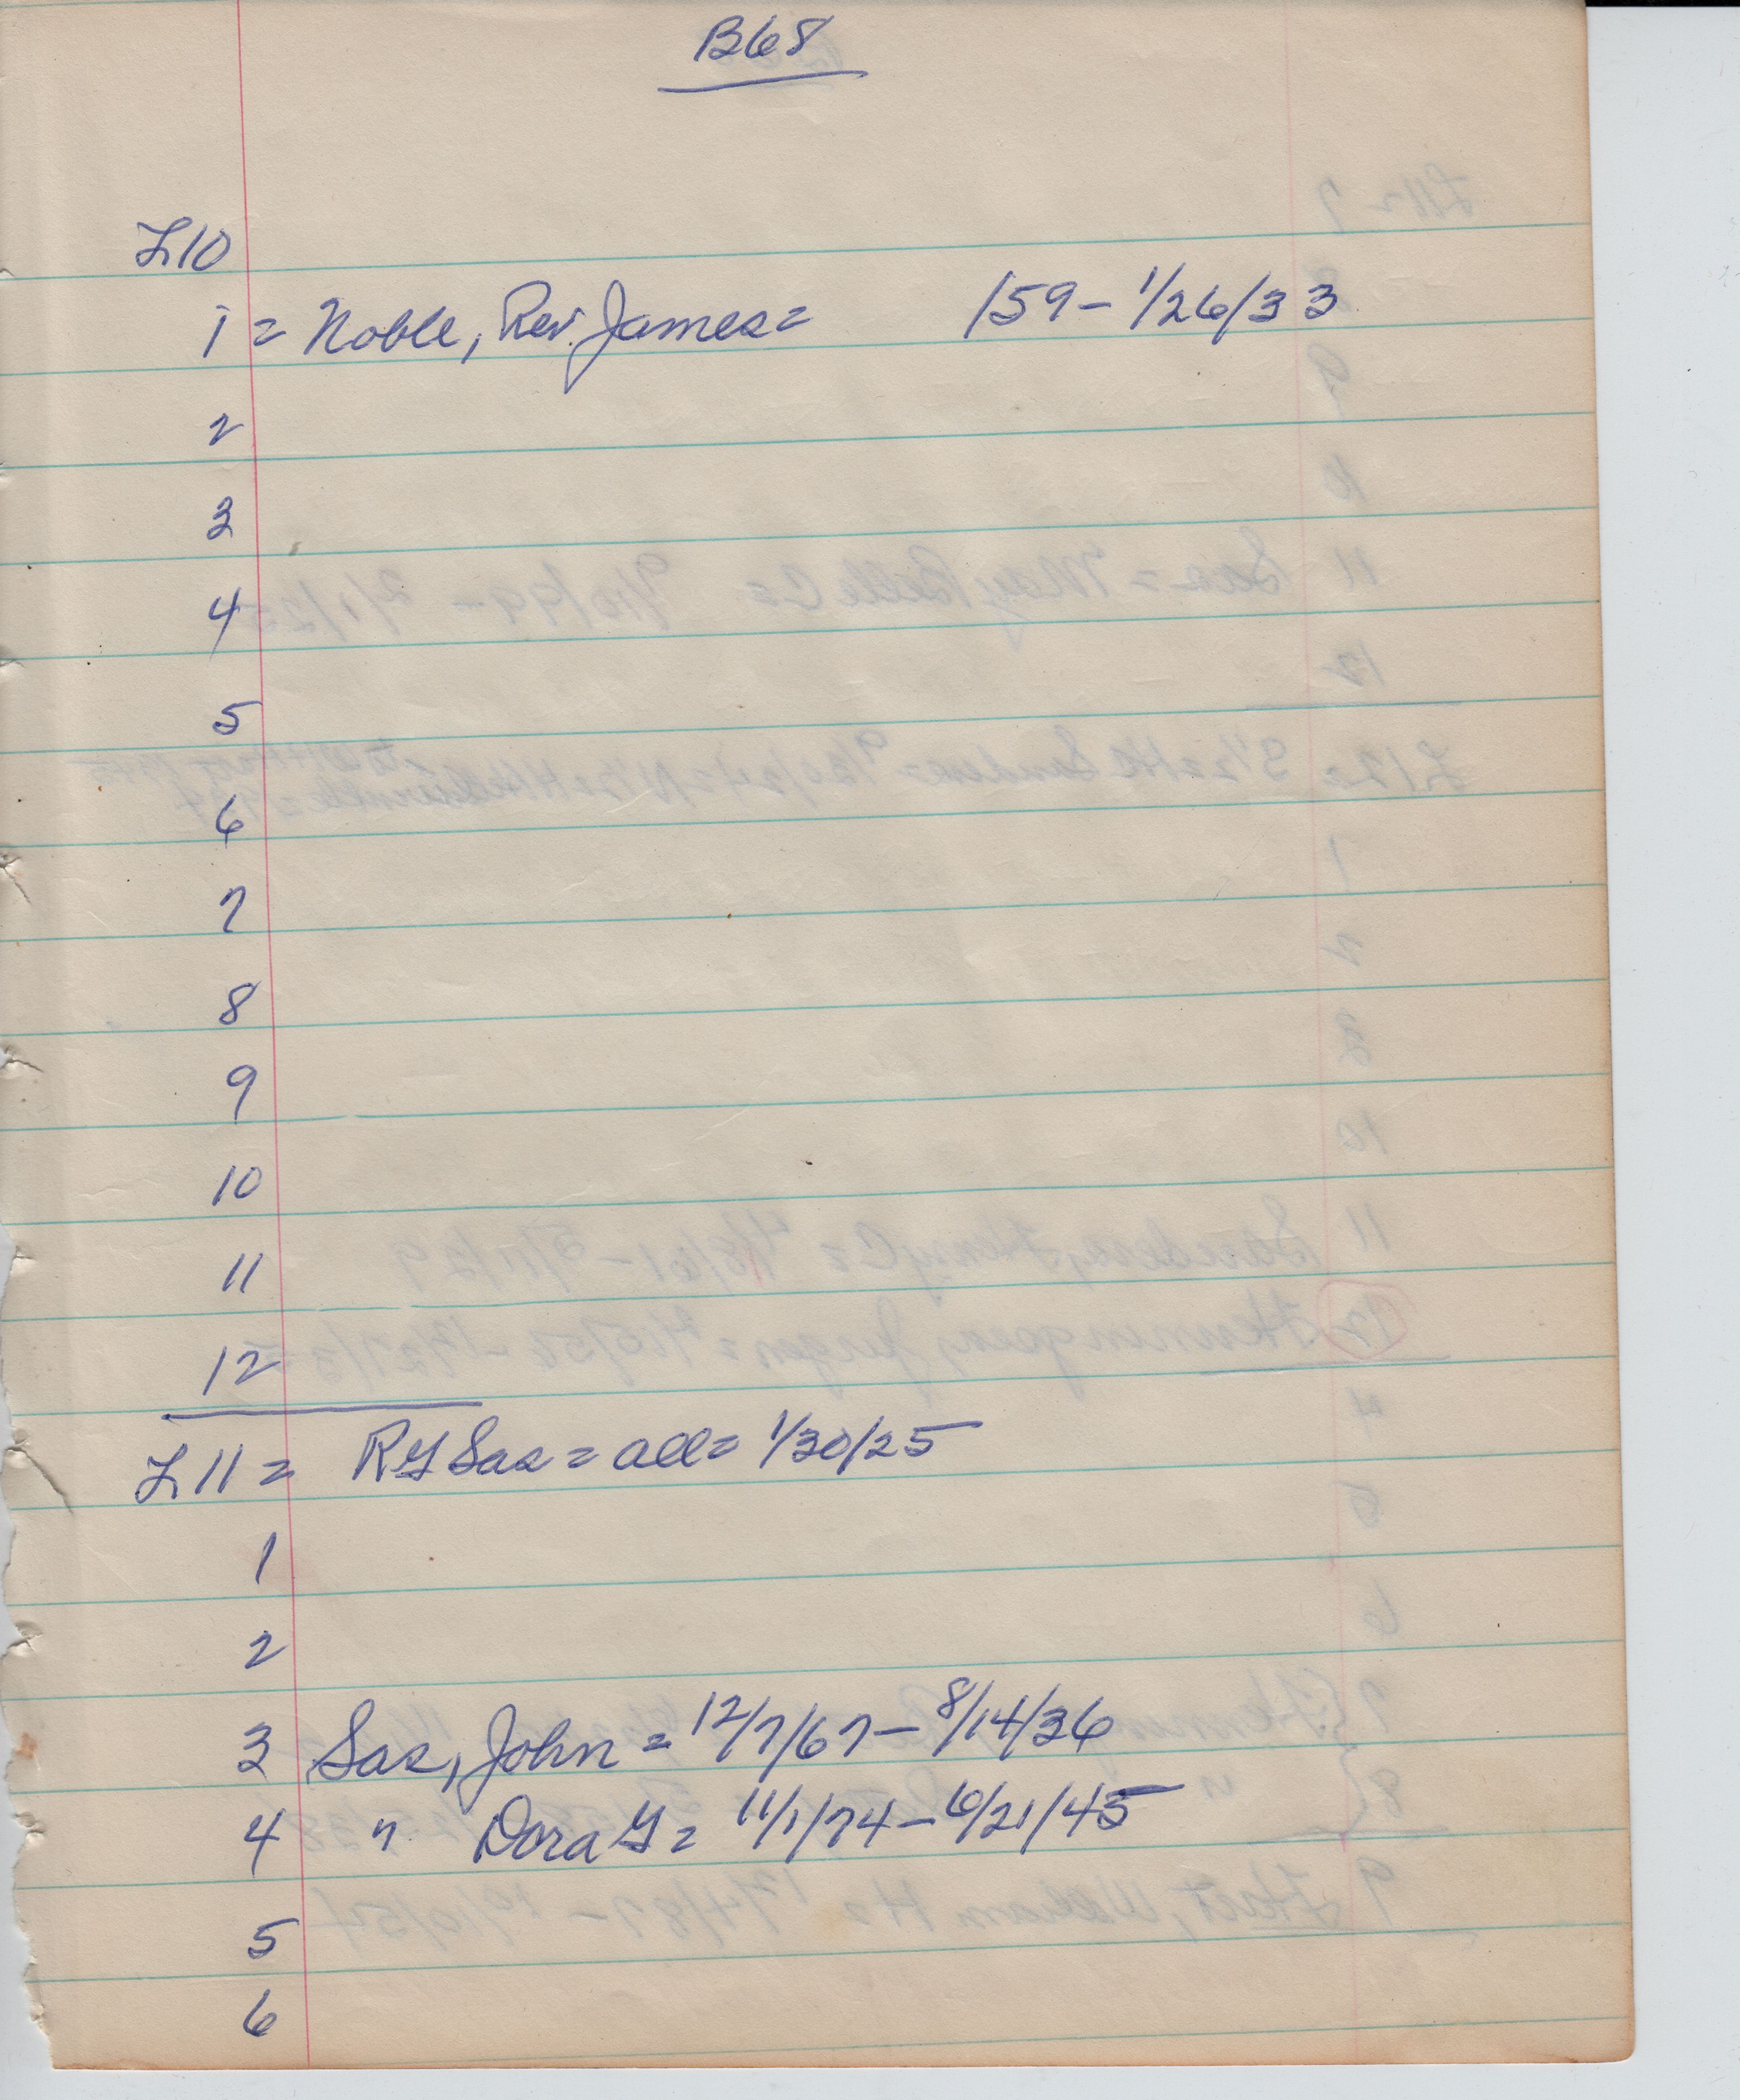 B68
L10
1 = Noble, Rev. James = 159 - 1/26/33
2
3
4
5
6
7
8
9
10
11
12
L11 = RG Sas = all = 1/30/25
1
2
3 Sas, John = 12/7/67 - 8/14/36
4 " Dora G = 11/1/74 - 6/21/45
5
6